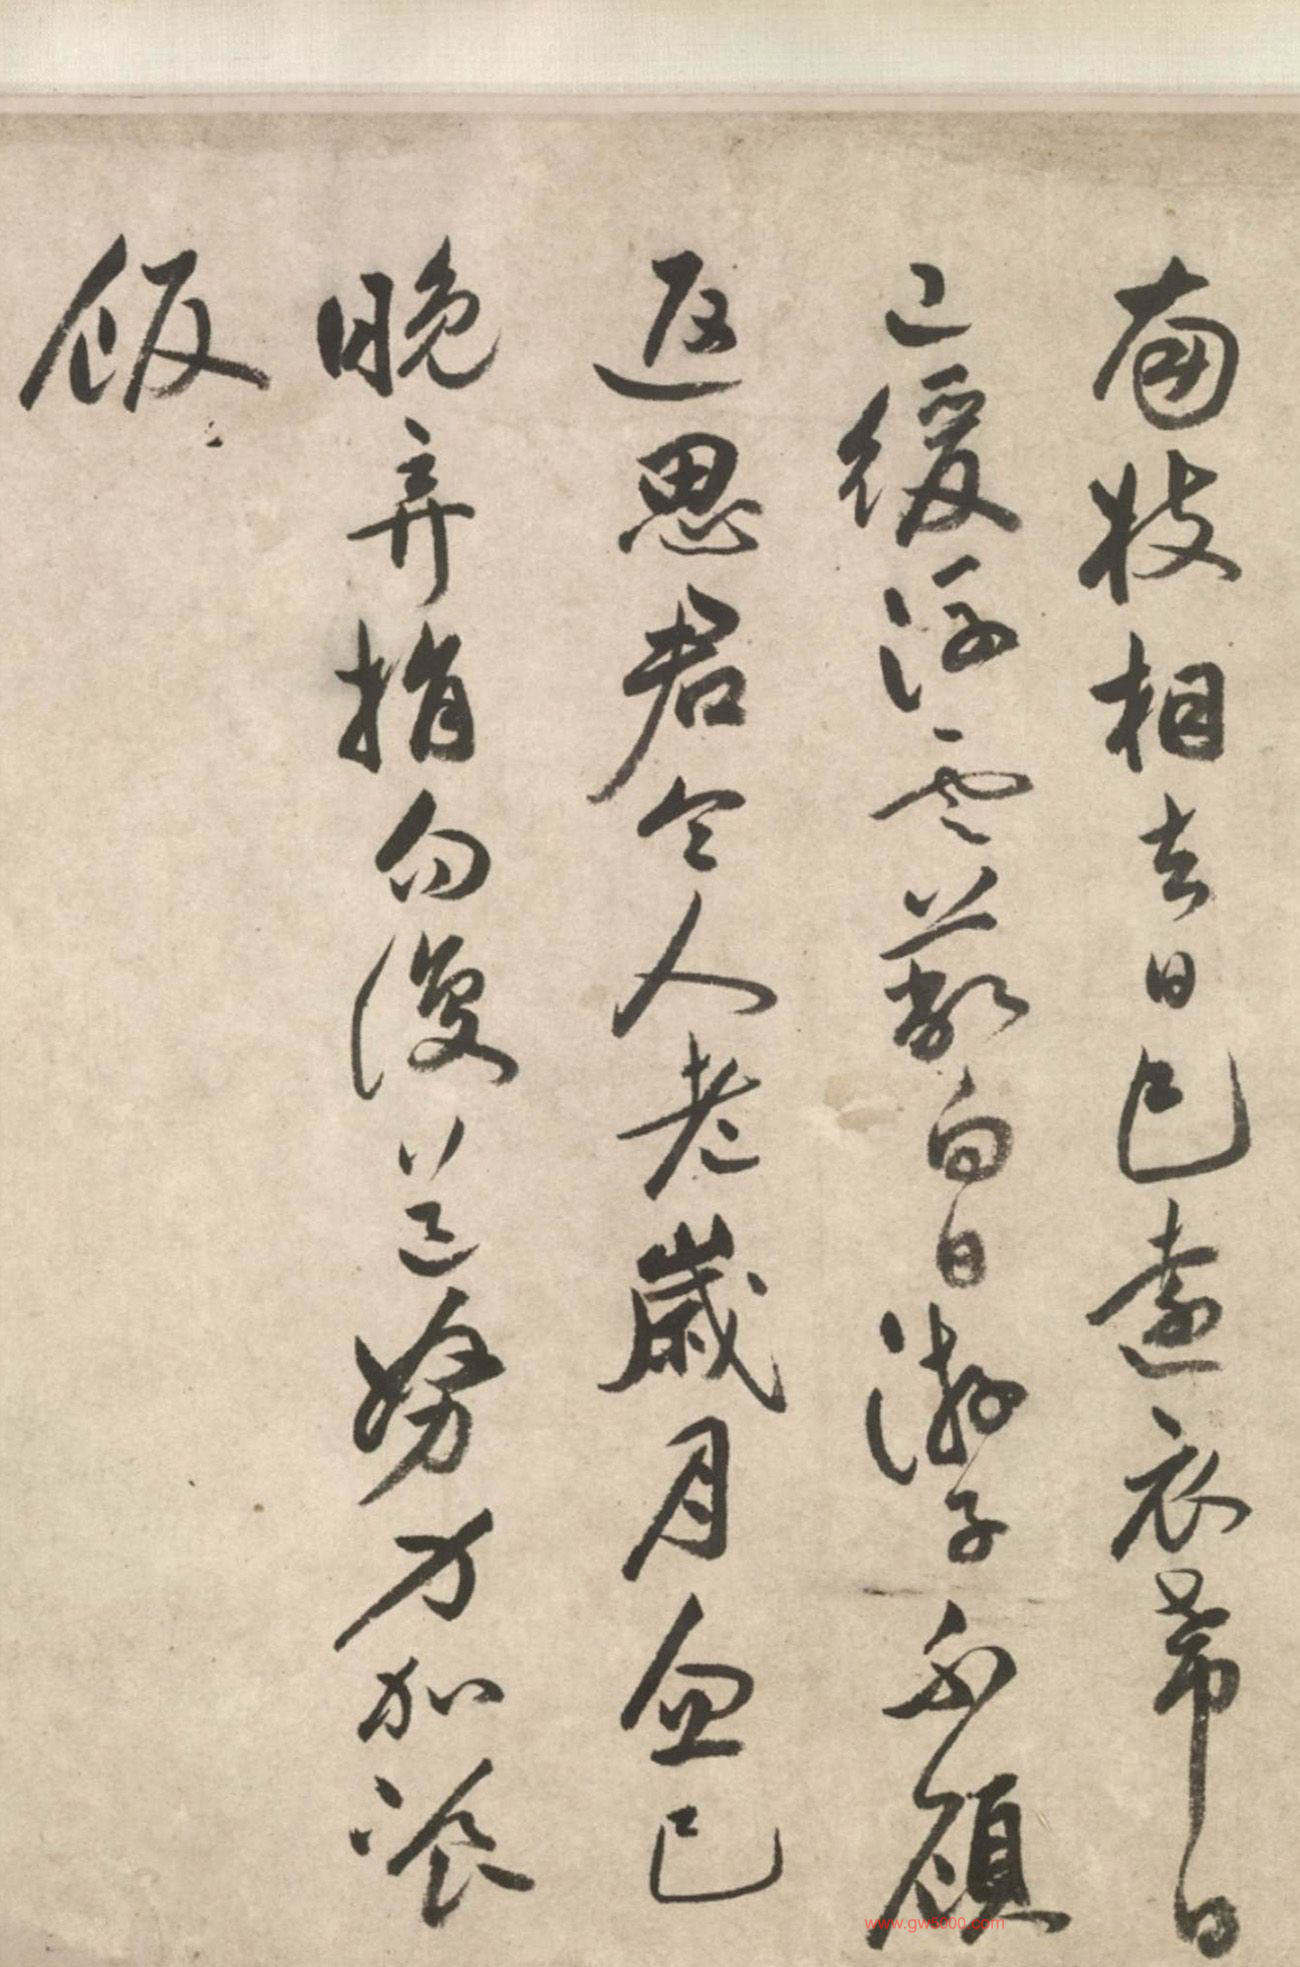 南枝相去日已遠衣帶日
已緩浮雲蔽白日游子不顧
返思君令人老歲月忽已
晚弃捐勿復道努力加飡
飯
www.gw5000.com